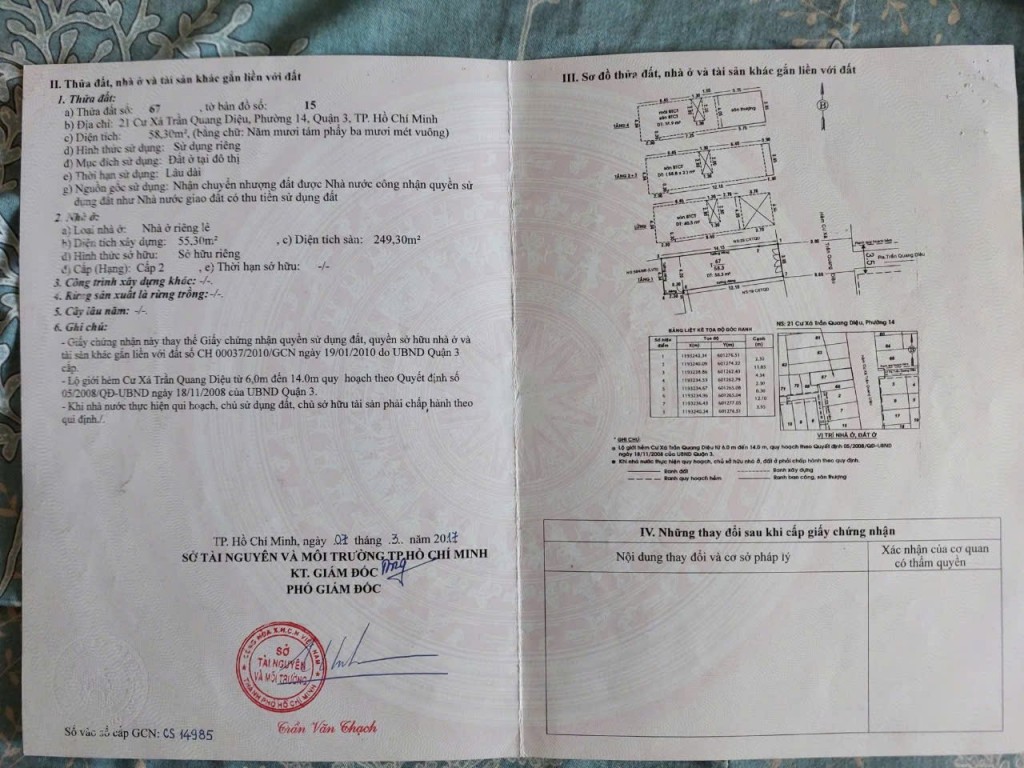 II. Thửa đất, nhà ở và tài sản khác gắn liền với đất
1. Thửa đất:
a) Thửa đất số: 67 , tờ bản đồ số: 15
b) Địa chỉ: 21 Cư Xá Trần Quang Diệu, Phường 14, Quận 3, TP. Hồ Chí Minh
c) Diện tích: 58,30m², (bằng chữ: Năm mươi tám phẩy ba mươi mét vuông)
d) Hình thức sử dụng: Sử dụng riêng
đ) Mục đích sử dụng: Đất ở tại đô thị
e) Thời hạn sử dụng: Lâu dài
g) Nguồn gốc sử dụng: Nhận chuyển nhượng đất được Nhà nước công nhận quyền sử
dụng đất như Nhà nước giao đất có thu tiền sử dụng đất
2. Nhà ở:
a) Loại nhà ở: Nhà ở riêng lẻ
b) Diện tích xây dựng: 55,30m² , c) Diện tích sàn: 249,30m²
d) Hình thức sở hữu: Sở hữu riêng
đ) Cấp (Hạng): Cấp 2 , e) Thời hạn sở hữu: -/-
3. Công trình xây dựng khác: -/-.
4. Rừng sản xuất là rừng trồng:-/-.
5. Cây lâu năm: -/-.
6. Ghi chú:
- Giấy chứng nhận này thay thế Giấy chứng nhận quyền sử dụng đất, quyền sở hữu nhà ở và
tài sản khác gắn liền với đất số CH 00037/2010/GCN ngày 19/01/2010 do UBND Quận 3
cấp.
- Lộ giới hẻm Cư Xá Trần Quang Diệu từ 6,0m đến 14.0m quy hoạch theo Quyết định số
05/2008/QĐ-UBND ngày 18/11/2008 của UBND Quận 3.
- Khi nhà nước thực hiện qui hoạch, chủ sử dụng đất, chủ sở hữu tài sản phải chấp hành theo
qui định./.
TP. Hồ Chí Minh, ngày 07 tháng 3 năm 2017
SỞ TÀI NGUYÊN VÀ MÔI TRƯỜNG TP.HỒ CHÍ MINH
KT. GIÁM ĐỐC
PHÓ GIÁM ĐỐC
CỘNG HÒA X.H.C.N VIỆT NAM
SỞ
TÀI NGUYÊN
VÀ MÔI TRƯỜNG
THÀNH PHỐ HỒ CHÍ MINH
Trần Văn Thạch
Số vào sổ cấp GCN: CS 14985
III. Sơ đồ thửa đất, nhà ở và tài sản khác gắn liền với đất
sân thượng
TẦNG 4
TẦNG 2+3
TẦNG 1
67
58.3
Trần Quang Diệu
Đ. Trần Quang Diệu
NS: 21 Cư Xá Trần Quang Diệu, Phường 14
BẢNG LIỆT KÊ TỌA ĐỘ GÓC RANH
Số hiệu điểm
Tọa độ
Cạnh (m)
X(m) Y(m)
VỊ TRÍ NHÀ Ở, ĐẤT Ở
* GHI CHÚ:
Lộ giới hẻm Cư Xá Trần Quang Diệu từ 6.0 m đến 14.0 m, quy hoạch theo Quyết định 05/2008/QĐ-UBND
ngày 18/11/2008 của UBND Quận 3.
Khi nhà nước thực hiện quy hoạch, chủ sở hữu nhà ở, đất ở phải chấp hành theo quy định.
Ranh đất
Ranh xây dựng
Ranh quy hoạch hẻm
Ranh ban công, sân thượng
IV. Những thay đổi sau khi cấp giấy chứng nhận
Nội dung thay đổi và cơ sở pháp lý
Xác nhận của cơ quan
có thẩm quyền